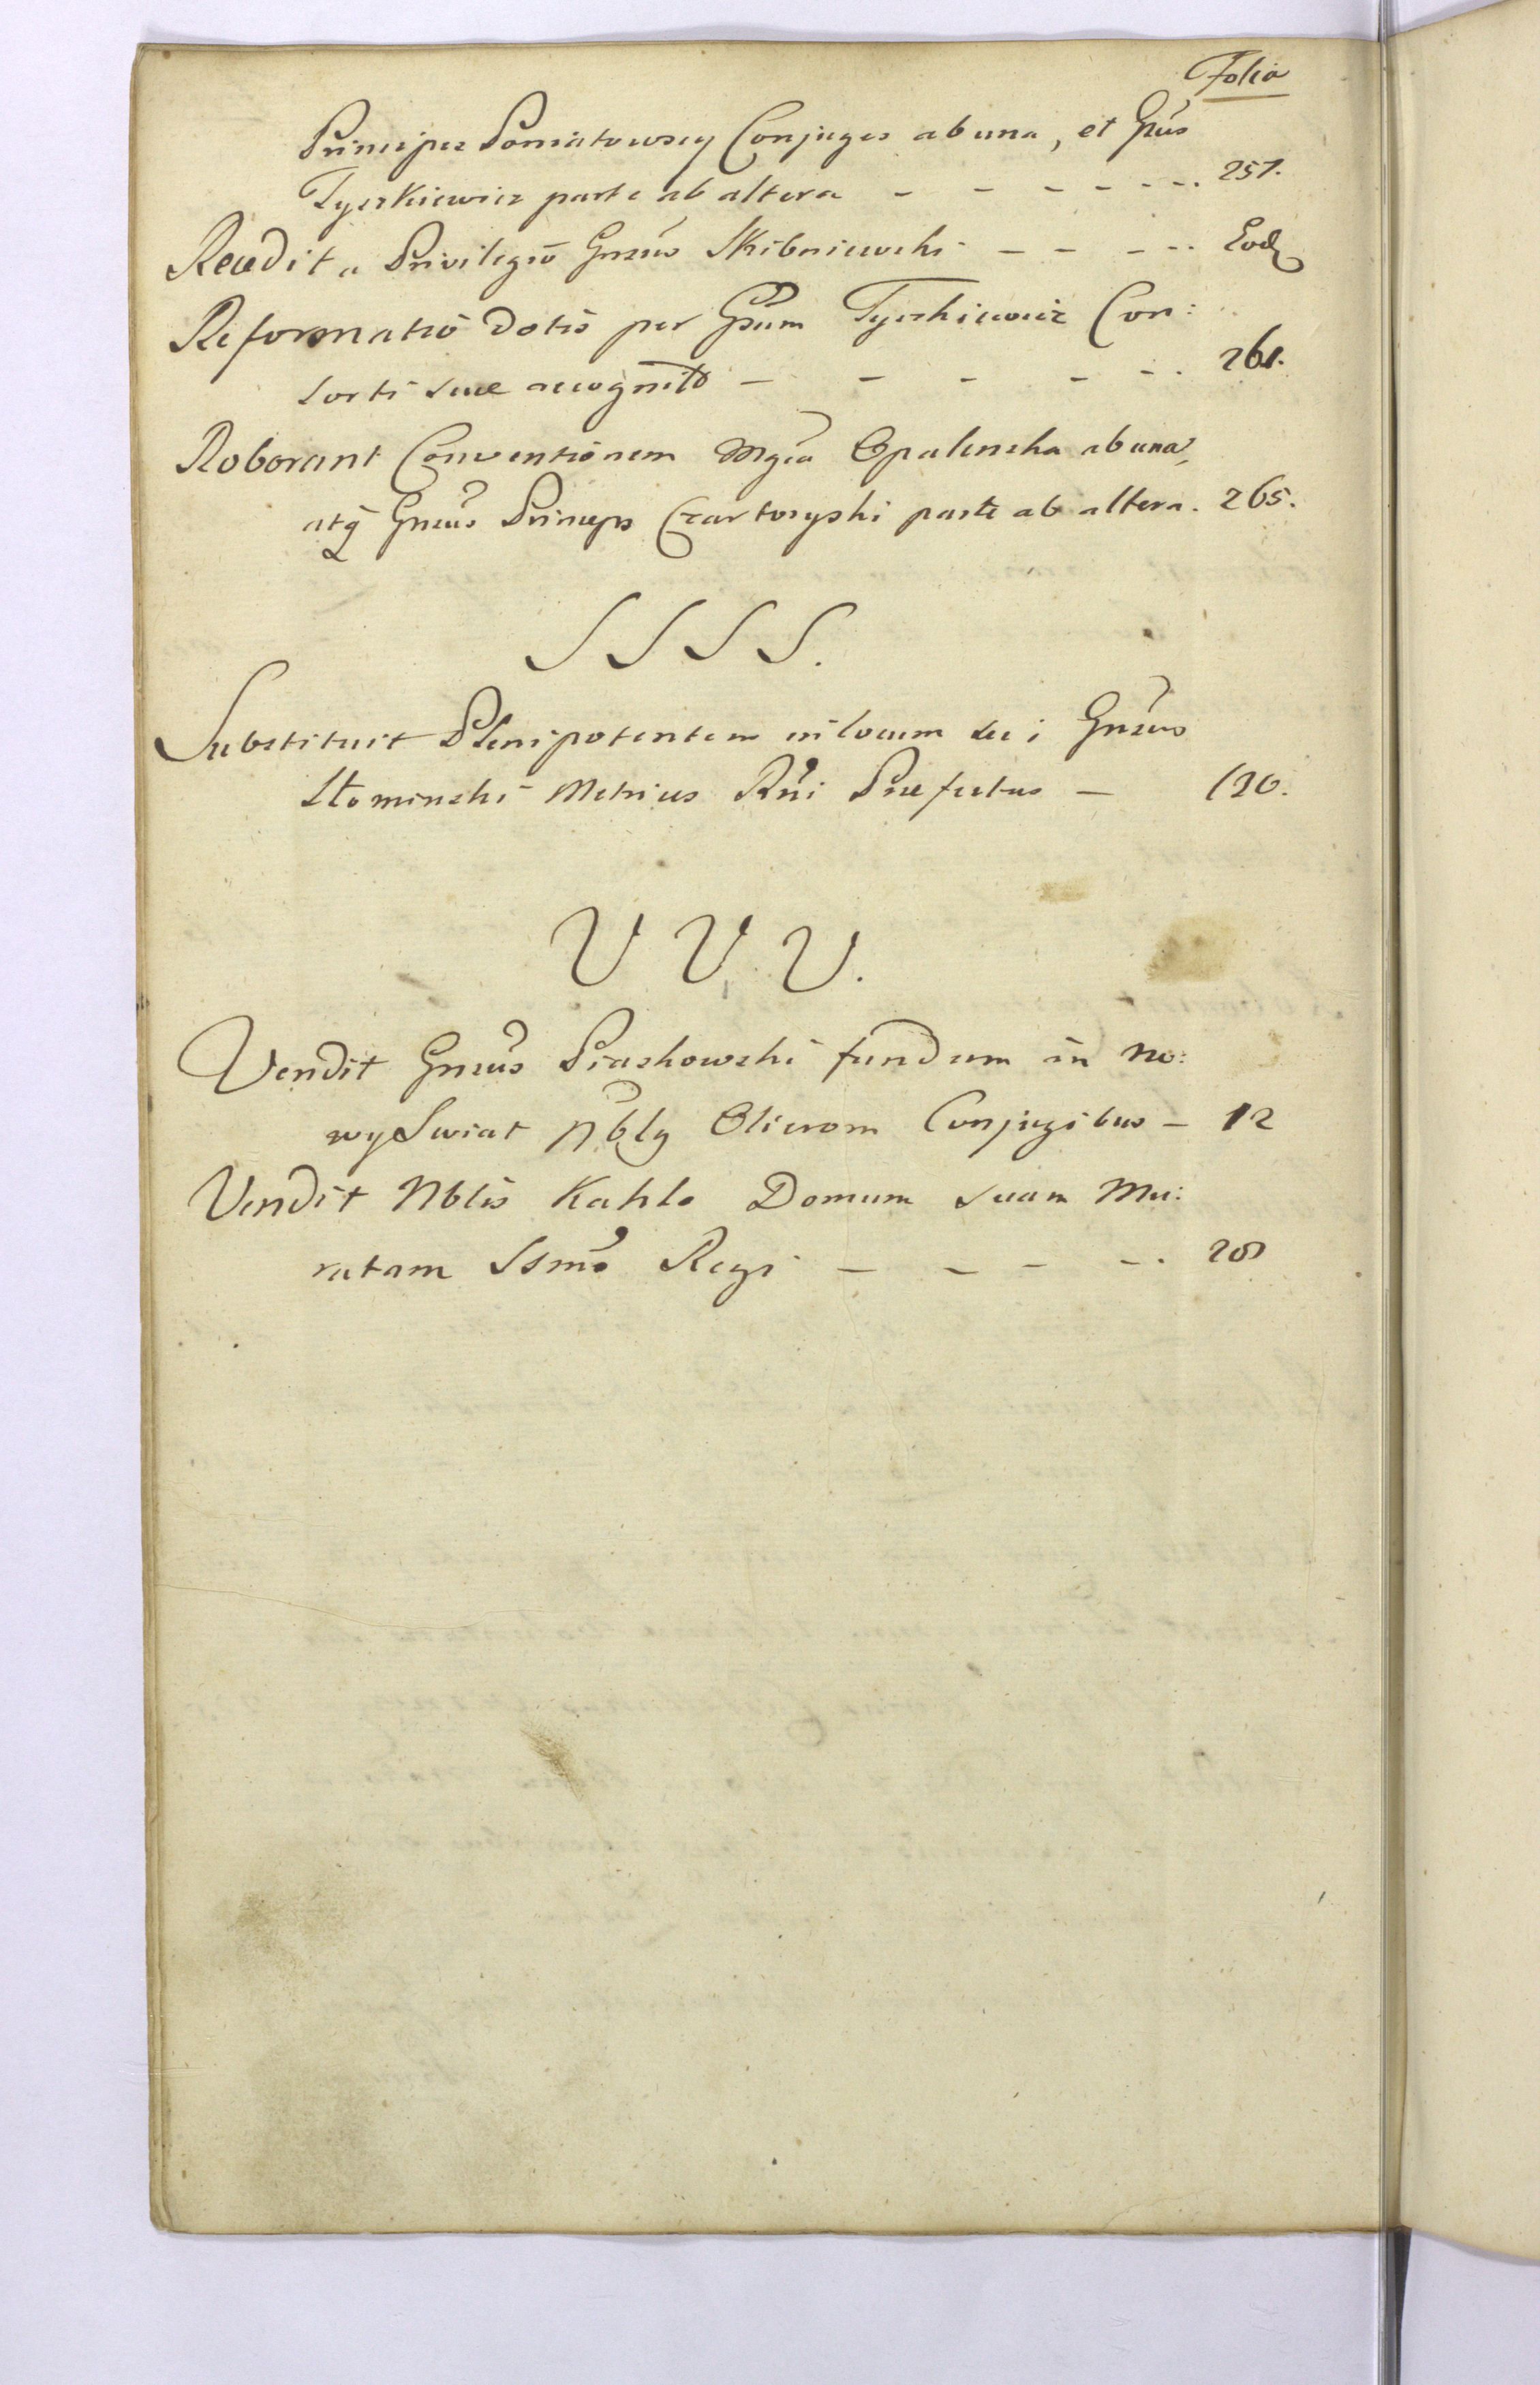 Folia
Principes Poniatowscy Conjuges ab una, et Gñus
Tyszkiewicz parte ab altera - - - - - - . 257.
Recedit a Privilegiõ Gnsus Skibniewski - - - - . Eod
Reformatiõ Dotis per Gsum Tyszkiewicz Con:
sorti suæ recognita - - - - - . 261.
Roborant Conventionem Mgca Opalenska ab una,
atq̃ Gnsus Princeps Czartoryski parte ab altera. 265.
S S S S.
Substituit Plenipotentem in locum sui Gnsus
Słominski Metrices Rñi Præfectus - 120.
V V V.
Vendit Gnsus Piaskowski fundum in No:
wy Swiat Nbly Olierom Conjugibus - 12
Vendit Nblis Kahlo Domum suam Mu:
ratam Ssmo Regi - - - - . 20